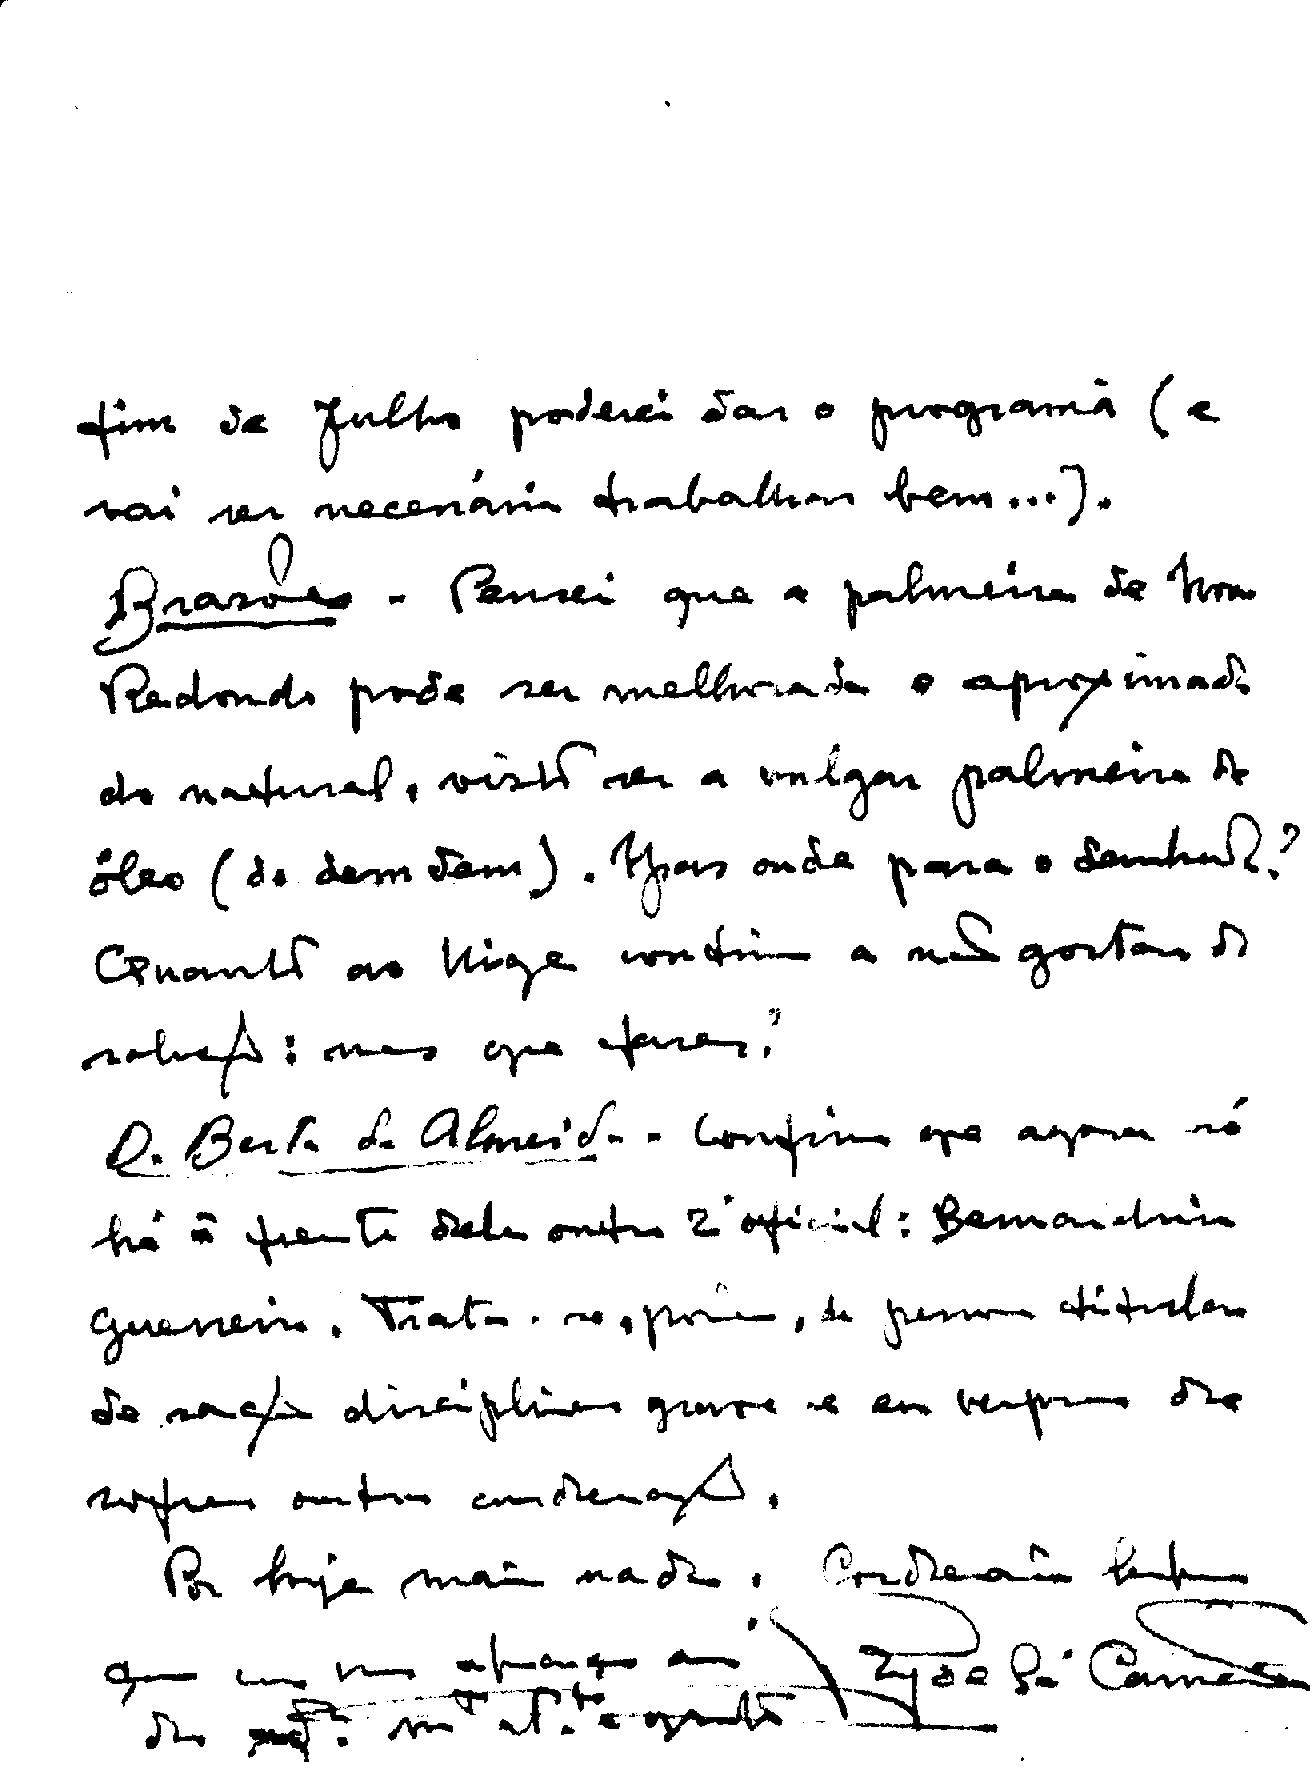 fim de Julho poderei dar o programa (e
vai ser necessário trabalhar bem...).
Brasões - Pensei que a palmeira de Novo
Redondo pode ser melhorada e aproximada
do natural, visto ser a vulgar palmeira de
óleo (do dem dem). Mas onde para o desenhador?
Quanto ao Uige continuo a não gostar da
solução: mas que fazer?
D. Berta de Almeida - Confirmo que agora só
há à frente dela outro 2º oficial: Bernardino
Guerreiro. Trata-se, porém, de pessoa titular
de sanção disciplinar grave e em vésperas de
sofrer outra condenação.
Por hoje mais nada. Cordeais
que um abraço
do mto. at.to e grato
Ruy de Sá Carneiro